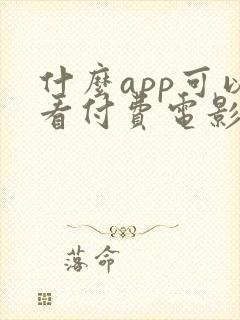 什麼app可以
看付費電影
落命